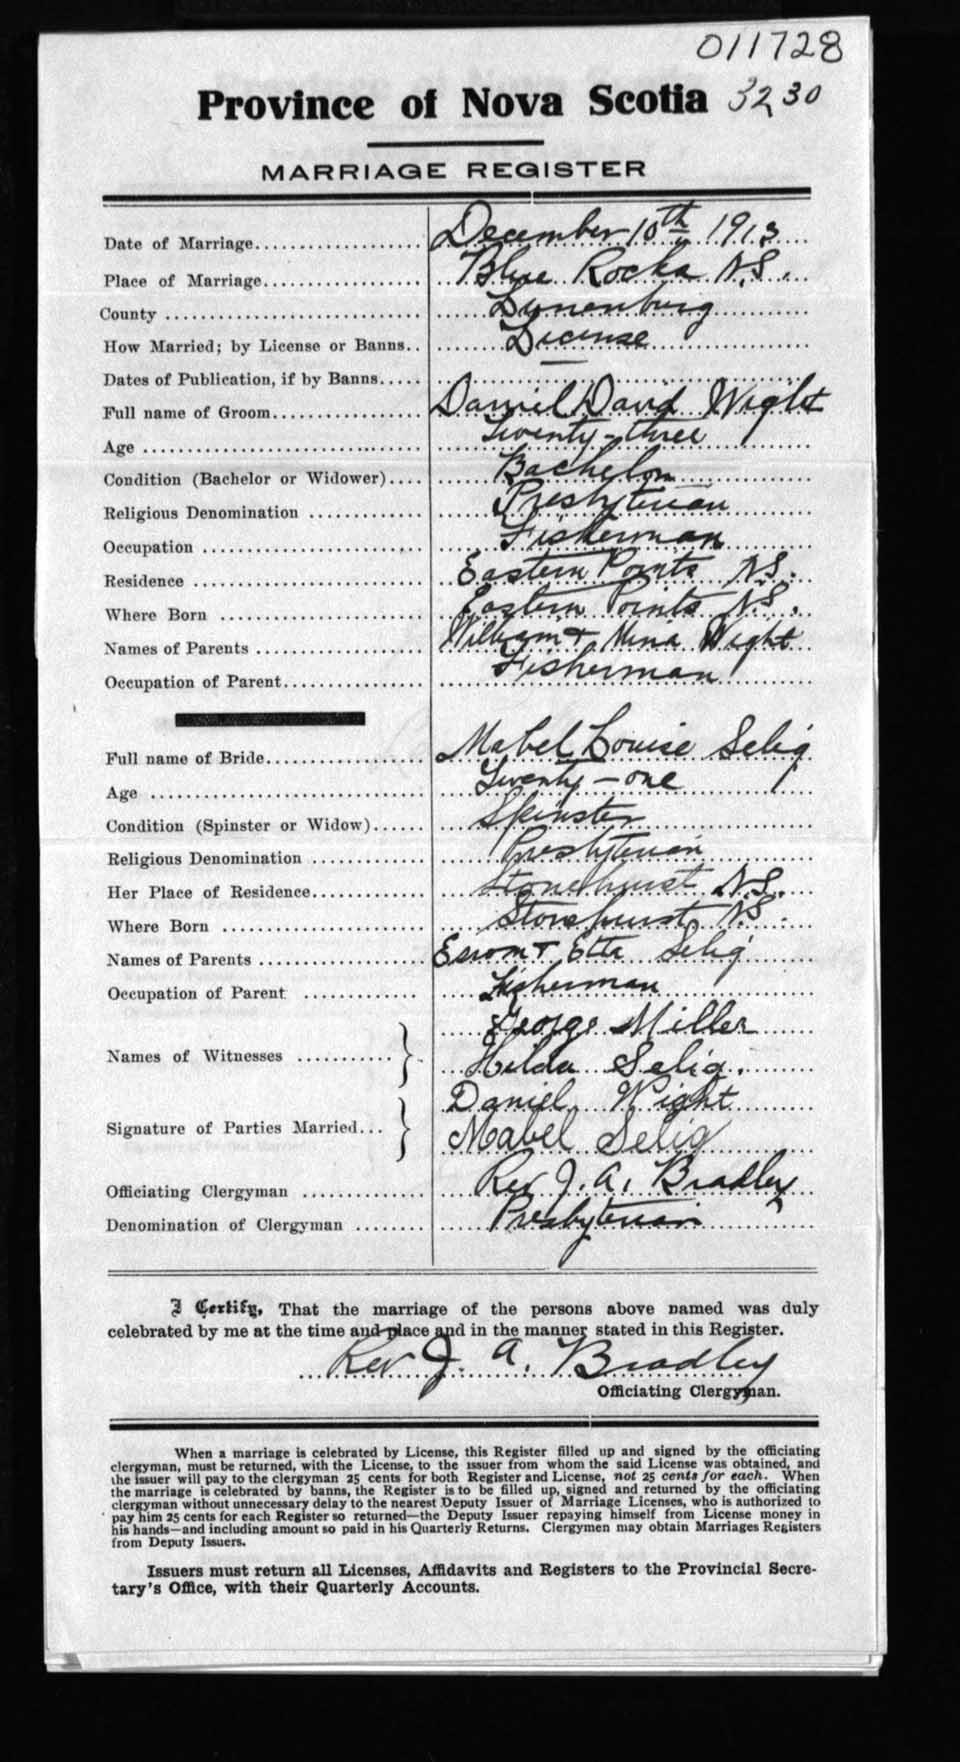 011728
Province of Nova Scotia 3230
MARRIAGE REGISTER
Date of Marriage.................. December 10th 1913
Place of Marriage.................. Blue Rocks N.S.
County .................. Lunenburg
How Married; by License or Banns.. License
Dates of Publication, if by Banns..... —
Full name of Groom.................. Daniel David Wight
Age .................. Twenty-three
Condition (Bachelor or Widower).... Bachelor
Religious Denomination ............ Presbyterian
Occupation .................. Fisherman
Residence .................. Eastern Points N.S.
Where Born .................. Eastern Points N.S.
Names of Parents .................. William + Mina Wight
Occupation of Parent.................. Fisherman
Full name of Bride.................. Mabel Louise Selig
Age .................. Twenty-one
Condition (Spinster or Widow)...... Spinster
Religious Denomination ............ Presbyterian
Her Place of Residence............ Stonehurst N.S.
Where Born .................. Stonehurst N.S.
Names of Parents .................. + Etta Selig
Occupation of Parent ............ Fisherman
George Miller
Names of Witnesses ............ } Hilda Selig.
Daniel Wight
Signature of Parties Married... } Mabel Selig
Officiating Clergyman ............ Rev J. A. Bradley
Denomination of Clergyman ........ Presbyterian
I Certify, That the marriage of the persons above named was duly
celebrated by me at the time and place and in the manner stated in this Register.
Rev J. A. Bradley
Officiating Clergyman.
When a marriage is celebrated by License, this Register filled up and signed by the officiating
clergyman, must be returned, with the License, to the issuer from whom the said License was obtained, and
the issuer will pay to the clergyman 25 cents for both Register and License, not 25 cents for each. When
the marriage is celebrated by banns, the Register is to be filled up, signed and returned by the officiating
clergyman without unnecessary delay to the nearest Deputy Issuer of Marriage Licenses, who is authorized to
pay him 25 cents for each Register so returned—the Deputy Issuer repaying himself from License money in
his hands—and including amount so paid in his Quarterly Returns. Clergymen may obtain Marriages Registers
from Deputy Issuers.
Issuers must return all Licenses, Affidavits and Registers to the Provincial Secre-
tary's Office, with their Quarterly Accounts.